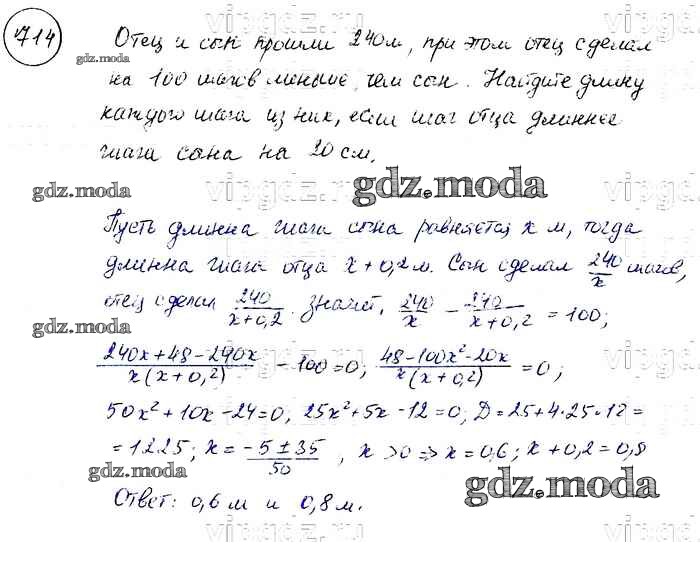 714
Отец и сын прошли 240м, при этом отец сделал
на 100 шагов меньше, чем сын. Найдите длину
каждого шага из них, если шаг отца длиннее
шага сына на 20 см.
Пусть длинна шага сына равняется x м, тогда
длинна шага отца x+0,2м. Сын сделал 240/x шагов,
отец сделал 240/(x+0,2). Значит, 240/x - 240/(x+0,2) = 100;
(240x+48-240x)/(x(x+0,2)) - 100=0; (48-100x²-20x)/(x(x+0,2)) = 0;
50x²+10x-24=0, 25x²+5x-12=0; D=25+4·25·12=
=1225; x= (-5±35)/50, x>0 => x=0,6; x+0,2=0,8
Ответ: 0,6 м и 0,8 м.
gdz.moda
gdz.moda
gdz.moda
gdz.moda
gdz.moda
gdz.moda